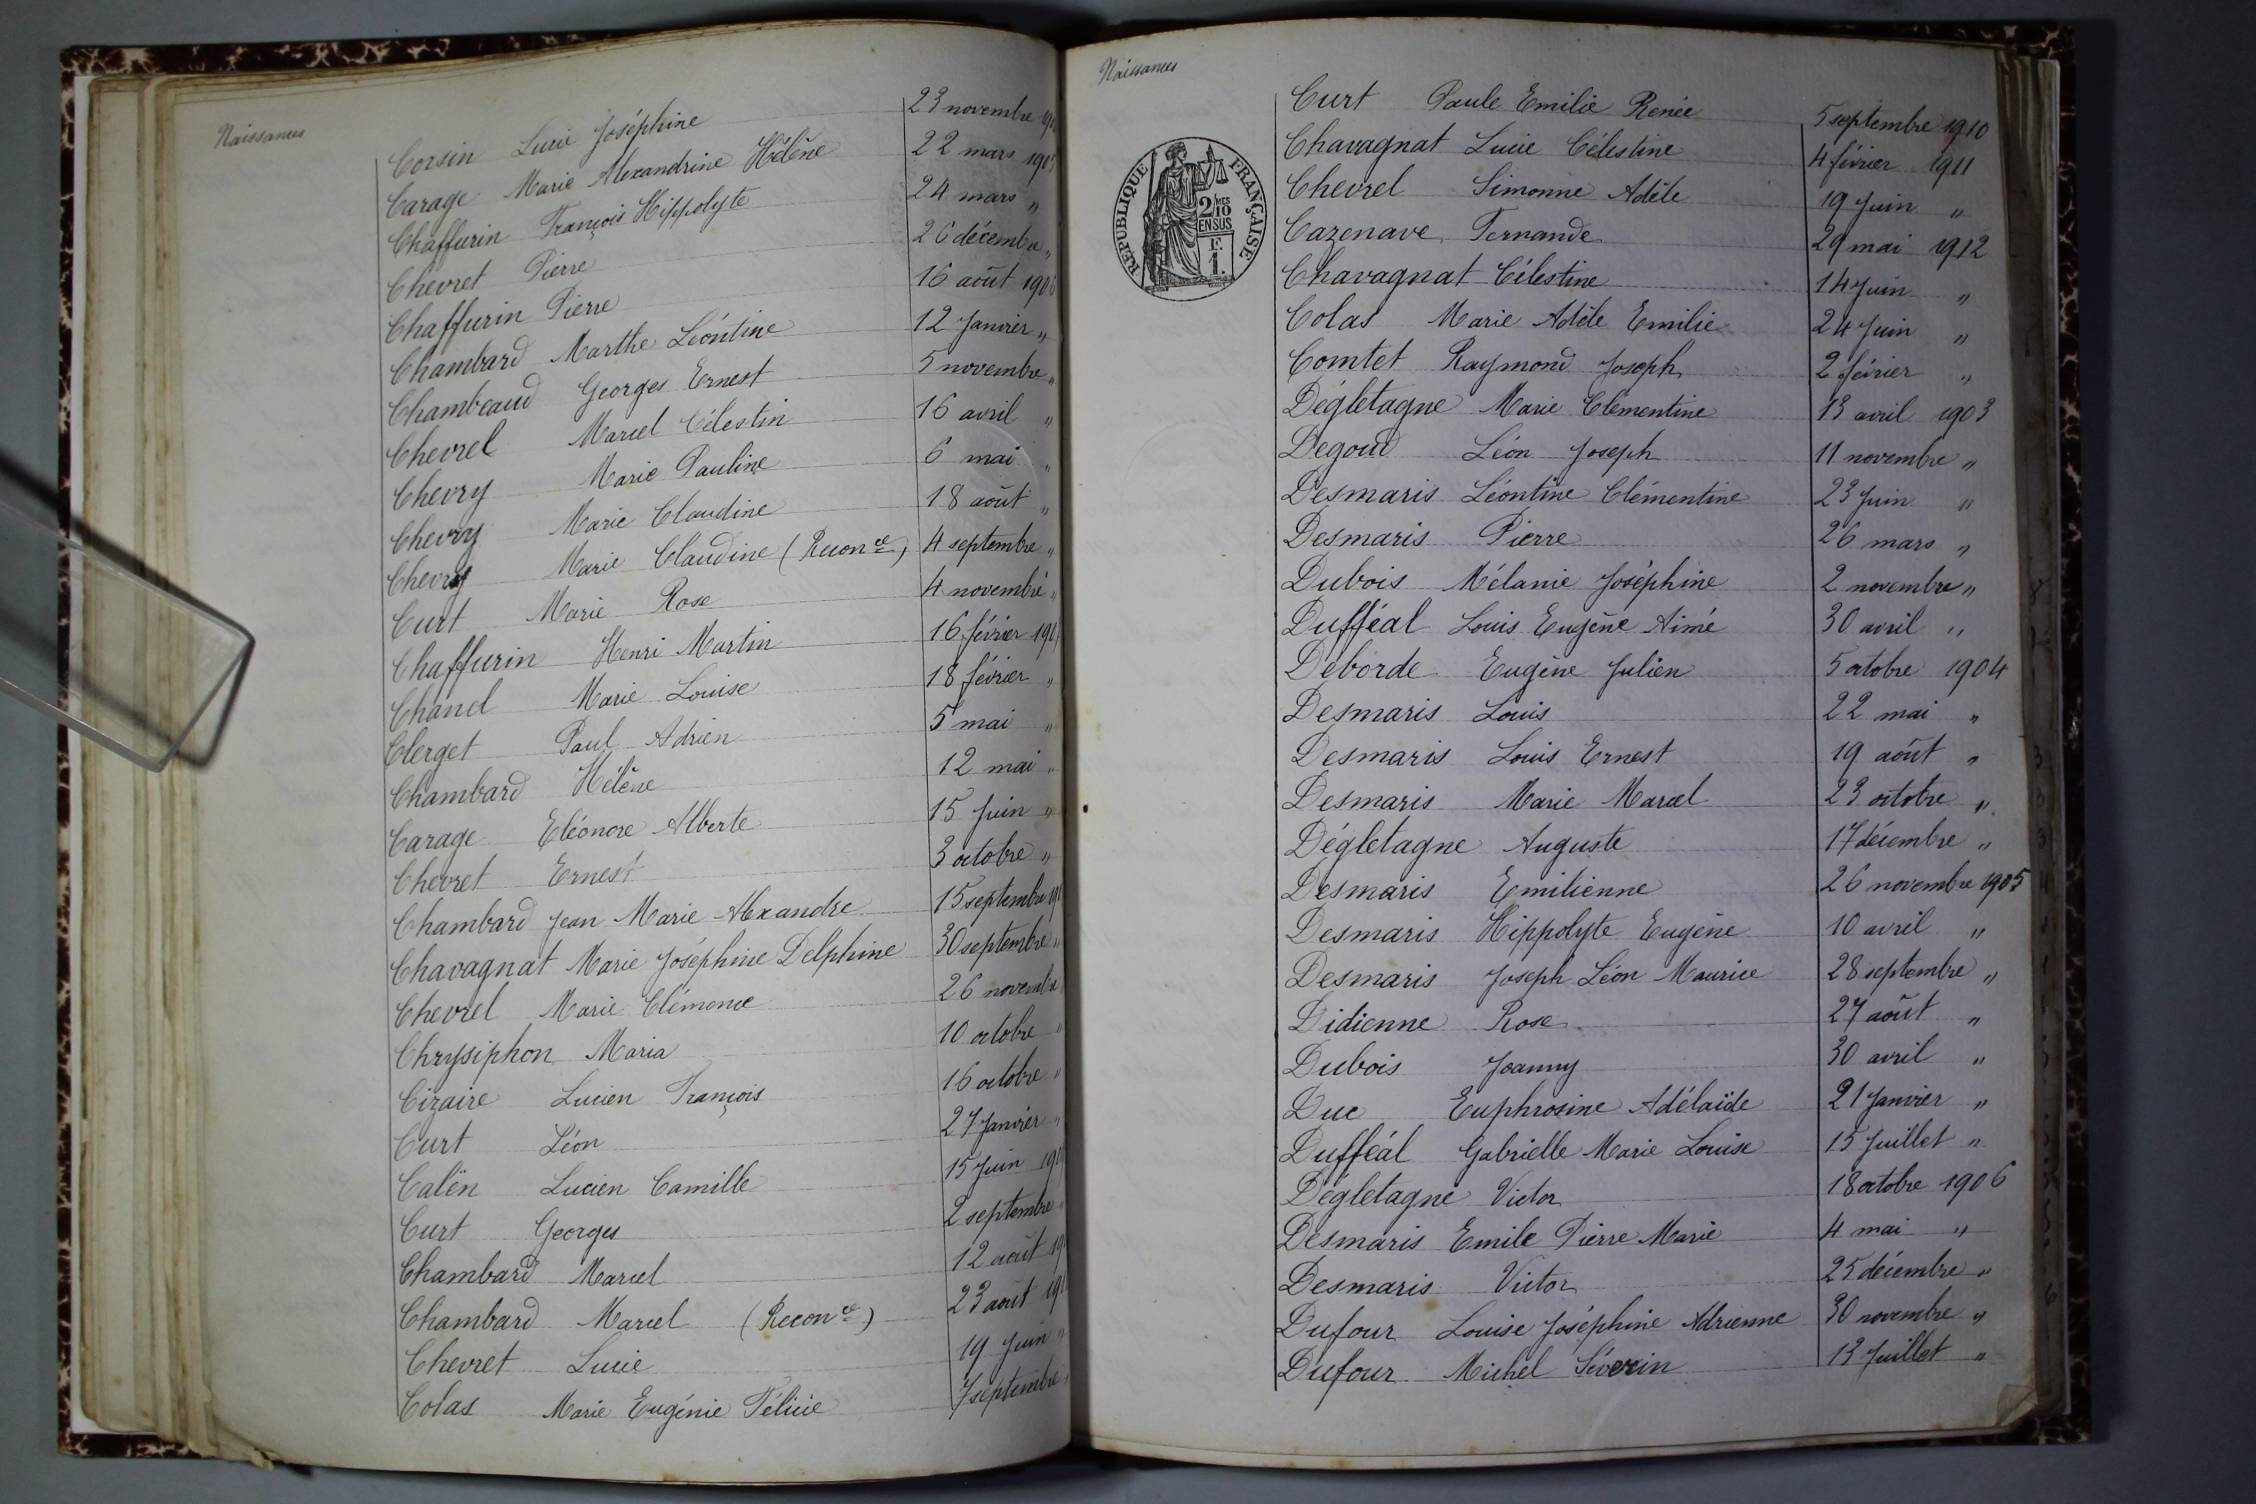 Naissances
Corsin Lucie Joséphine 23 novembre
Carage Marie Alexandrine Hélène 22 mars 1905
Chaffurin François Hippolyte 24 mars "
Chevret Pierre 26 décembre "
Chaffurin Pierre 16 août 1906
Chambard Marthe Léontine 12 Janvier "
Chambeaud Georges Ernest 5 novembre "
Chevrel Marcel Célestin 16 avril "
Chevry Marie Pauline 6 mai "
Chevry Marie Claudine 18 août "
Chevry Marie Claudine (Reconce) 4 septembre "
Curt Marie Rose 4 novembre "
Chaffurin Henri Martin 16 février 190
Chanel Marie Louise 18 février "
Clerget Paul Adrien 5 mai "
Chambard Hélène 12 mai "
Carage Eléonore Alberte 15 Juin "
Chevret Ernest 3 octobre "
Chambard Jean Marie Alexandre 15 septembre 19
Chavagnat Marie Joséphine Delphine 30 septembre "
Chevrel Marie Clémence 26 novembre
Chrysiphon Maria 10 octobre "
Cizaire Lucien François 16 octobre "
Curt Léon 27 Janvier "
Calën Lucien Camille 15 Juin 19
Curt Georges 2 septembre "
Chambard Marcel 12 août 19
Chambard Marcel (Reconce) 23 août 19
Chevret Lucie 19 Juin "
Colas Marie Eugénie Félicie 7 septembre
Naissances
RÉPUBLIQUE FRANÇAISE
2/MES
10
EN SUS
F.
1.
Curt Paule Emilie Renée 5 septembre 1910
Chavagnat Lucie Célestine 4 février 1911
Chevrel Simonne Adèle 19 Juin "
Cazenave Fernande 29 mai 1912
Chavagnat Célestine 14 Juin "
Colas Marie Adèle Emilie 24 Juin "
Comtet Raymond Joseph 2 février "
Dégletagne Marie Clémentine 13 avril 1903
Degoud Léon Joseph 11 novembre "
Desmaris Léontine Clémentine 23 Juin "
Desmaris Pierre 26 mars "
Dubois Mélanie Joséphine 2 novembre "
Dufféal Louis Eugène Aimé 30 avril "
Déborde Eugène Julien 5 octobre 1904
Desmaris Louis 22 mai "
Desmaris Louis Ernest 19 août "
Desmaris Marie Marcel 23 octobre "
Dégletagne Auguste 17 décembre "
Desmaris Emilienne 26 novembre 1905
Desmaris Hippolyte Eugène 10 avril "
Desmaris Joseph Léon Maurice 28 septembre "
Didienne Rose 27 août "
Dubois Joanny 30 avril "
Duc Euphrosine Adélaïde 21 Janvier "
Dufféal Gabrielle Marie Louise 15 Juillet "
Dégletagne Victor 18 octobre 1906
Desmaris Emile Pierre Marie 4 mai "
Desmaris Victor 25 décembre "
Dufour Louise Joséphine Adrienne 30 novembre "
Dufour Michel Séverin 13 Juillet "